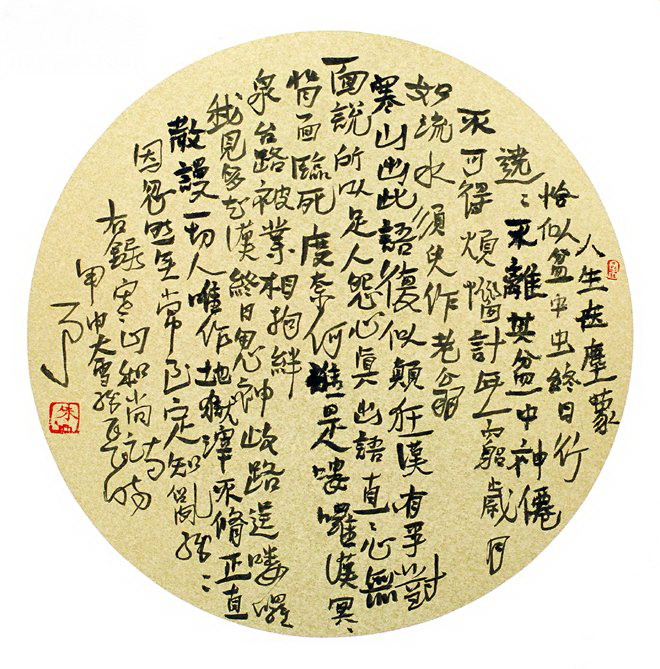 人生在塵蒙
恰似盆中虫終日行
遶〻不離其盆中神僊
不可得煩惱計無窮歲月
如流水須臾作老翁
寒山出此語復似顛狂漢有事對
面說所以足人怨心真出語直〻心無
背面臨死度奈何誰是嘍囉漢冥〻
泉台路被業相拘絆
我見多知漢終日用心神岐路逞嘍囉
欺謾一切人唯作地獄滓不修正直
因忽然無常到定知亂紛〻
右錄寒山和尚詩
甲申大雪